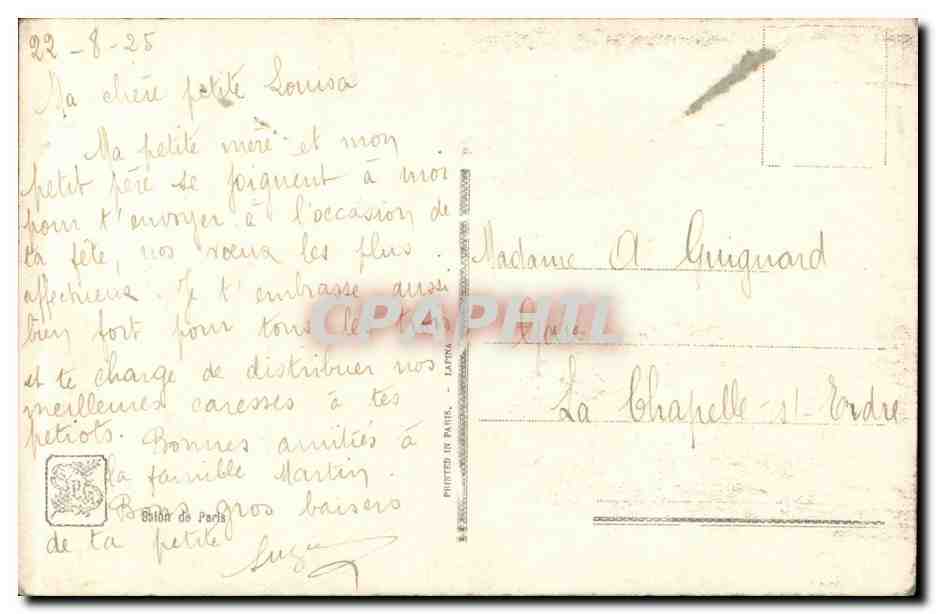 22-8-25
Ma chère petite Louisa
Ma petite mère et mon
petit père se joignent à moi
pour t'envoyer à l'occasion de
ta fête, nos vœux les plus
affectueux. Je t'embrasse aussi
bien fort pour tous les
et te charge de distribuer nos
meilleures caresses à tes
petiots. Bonnes amitiés à
la famille Martin.
Bons gros baisers
de ta petite
Salon de Paris
PRINTED IN PARIS. - LAPINA
Madame A Guignard
La Chapelle-s/-Erdre
CPAPHIL